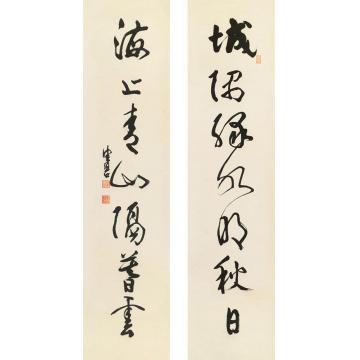 城隅绿水明秋日
海上青山隔暮云